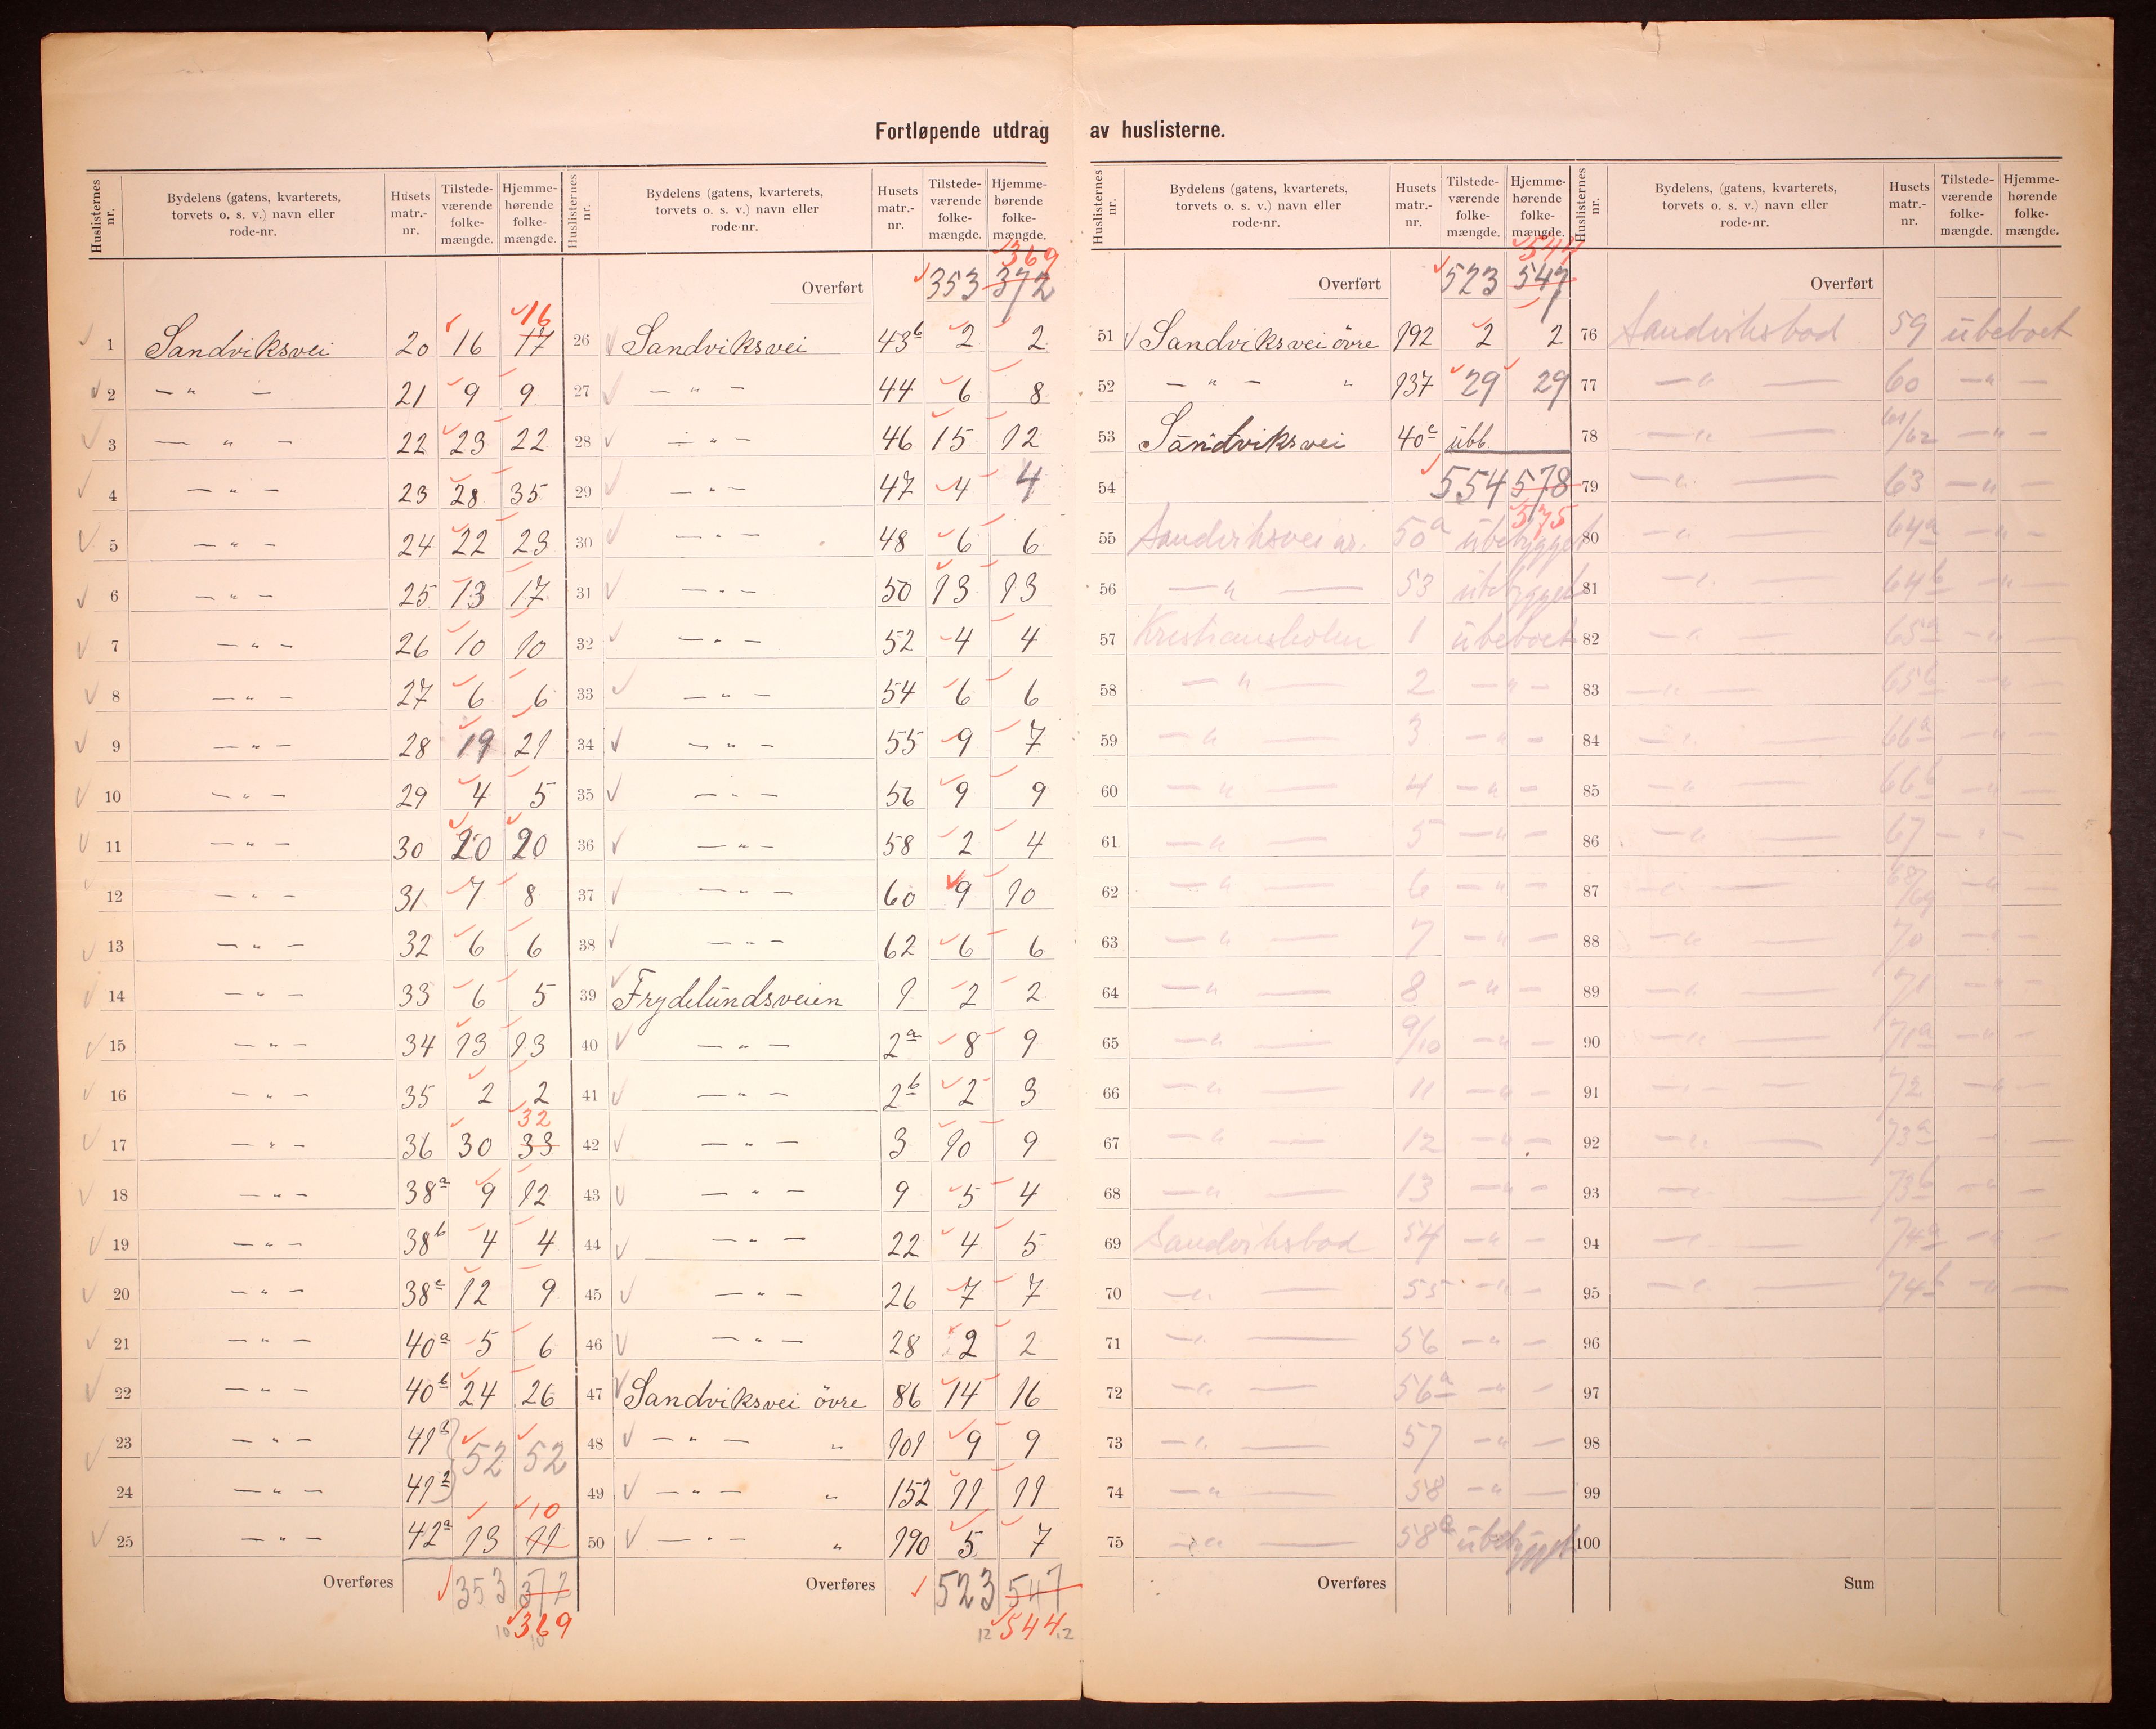 Fortløpende utdrag av huslisterne.
Huslisternes nr. | Bydelens (gatens, kvarterets, torvets o. s. v.) navn eller rode-nr. | Husets matr.-nr. | Tilstede-værende folke-mængde. | Hjemme-hørende folke-mængde.
1 Sandviksvei 20 16 17 16
2 — " — 21 9 9
3 — " — 22 23 22
4 — " — 23 28 35
5 — " — 24 22 23
6 — " — 25 13 17
7 — " — 26 10 10
8 — " — 27 6 6
9 — " — 28 19 21
10 — " — 29 4 5
11 — " — 30 20 20
12 — " — 31 7 8
13 — " — 32 6 6
14 — " — 33 6 5
15 — " — 34 13 13
16 — " — 35 2 2
17 — " — 36 30 33 32
18 — " — 38a 9 12
19 — " — 38b 4 4
20 — " — 38c 12 9
21 — " — 40a 5 6
22 — " — 40b 24 26
23 — " — 41 52 52
24 — " — 41
25 — " — 42a 13 11 10
Overføres 353 372
369
10 10
Huslisternes nr. | Bydelens (gatens, kvarterets, torvets o. s. v.) navn eller rode-nr. | Husets matr.-nr. | Tilstede-værende folke-mængde. | Hjemme-hørende folke-mængde.
369
Overført 353 372
26 Sandviksvei 43b 2 2
27 — " — 44 6 8
28 — " — 46 15 12
29 — " — 47 4 4
30 — " — 48 6 6
31 — " — 50 13 13
32 — " — 52 4 4
33 — " — 54 6 6
34 — " — 55 9 7
35 — " — 56 9 9
36 — " — 58 2 4
37 — " — 60 9 10
38 — " — 62 6 6
39 Frydelundsveien 1 2 2
40 — " — 2a 8 9
41 — " — 2b 2 3
42 — " — 3 10 9
43 — " — 9 5 4
44 — " — 22 4 5
45 — " — 26 7 7
46 — " — 28 2 2
47 Sandviksvei övre 86 14 16
48 — " — " 101 9 9
49 — " — " 152 11 11
50 — " — " 190 5 7
Overføres 523 547
12 544 12
Huslisternes nr. | Bydelens (gatens, kvarterets, torvets o. s. v.) navn eller rode-nr. | Husets matr.-nr. | Tilstede-værende folke-mængde. | Hjemme-hørende folke-mængde.
544
Overført 523 547
51 Sandviksvei övre 192 2 2
52 — " — " 137 29 29
53 Sandviksvei 40c übb.
54 554 578
575
55 Sandviksvei 50a übebygget
56 — " — 53 übebygget
57 Kristiansholm 1 übeboet
58 — " — 2 — " —
59 — " — 3 — " —
60 — " — 4 — " —
61 — " — 5 — " —
62 — " — 6 — " —
63 — " — 7 — " —
64 — " — 8 — " —
65 — " — 9/10 — " —
66 — " — 11 — " —
67 — " — 12 — " —
68 — " — 13 — " —
69 Sandviksbod 54 — " —
70 — " — 55 — " —
71 — " — 56 — " —
72 — " — 56a — " —
73 — " — 57 — " —
74 — " — 58 — " —
75 — " — 58a übebygget
Overføres
Huslisternes nr. | Bydelens, (gatens, kvarterets, torvets o. s. v.) navn eller rode-nr. | Husets matr.-nr. | Tilstede-værende folke-mængde. | Hjemme-hørende folke-mængde.
Overført
76 Sandviksbod 59 übeboet
77 — " — 60 — " —
78 — " — 61/62 — " —
79 — " — 63 — " —
80 — " — 64a — " —
81 — " — 64b — " —
82 — " — 65a — " —
83 — " — 65b — " —
84 — " — 66a — " —
85 — " — 66b — " —
86 — " — 67 — " —
87 — " — 68/69 — " —
88 — " — 70 — " —
89 — " — 71 — " —
90 — " — 71a — " —
91 — " — 72 — " —
92 — " — 73a — " —
93 — " — 73b — " —
94 — " — 74a — " —
95 — " — 74b — " —
96
97
98
99
100
Sum